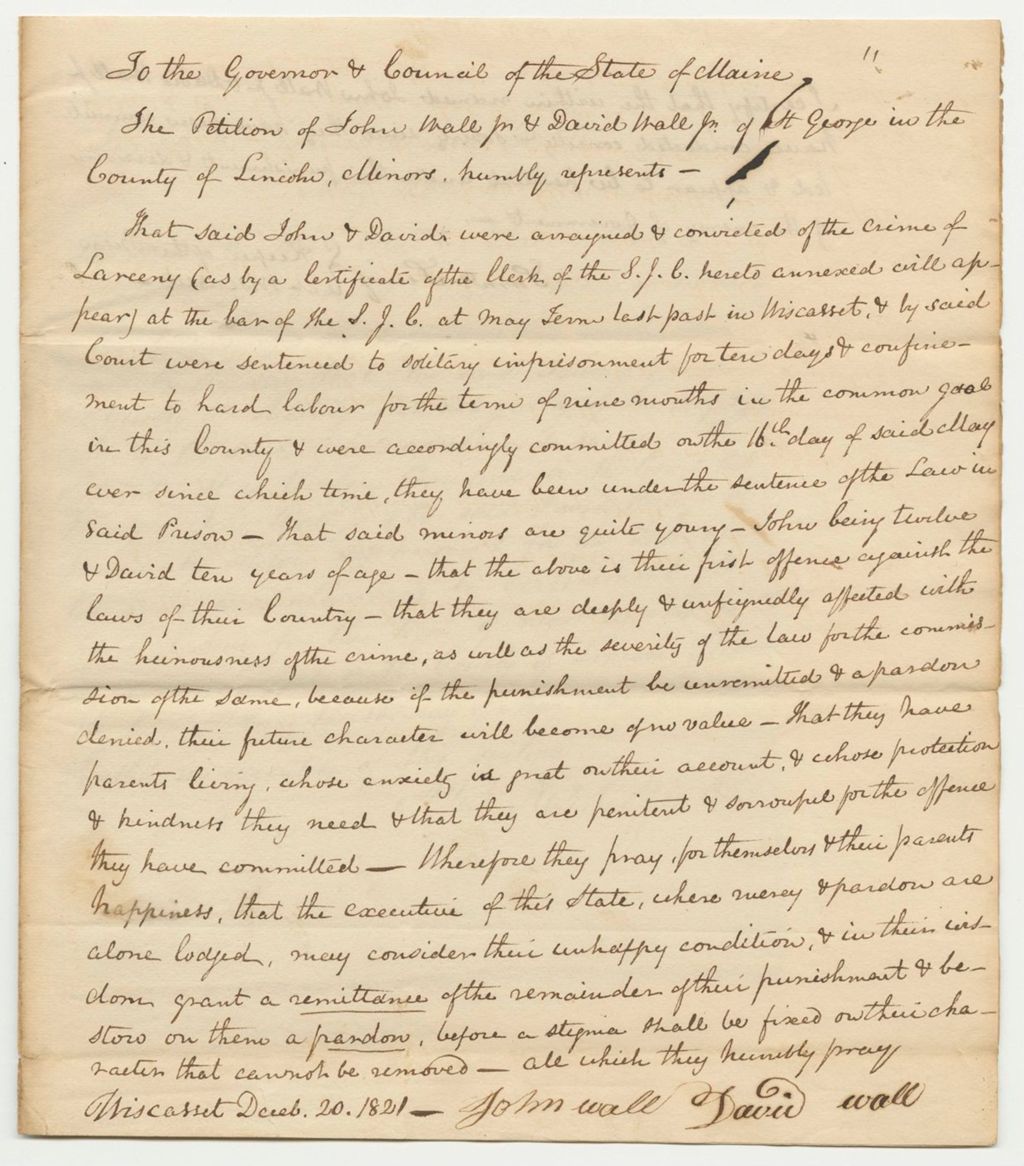 To the Governor & Council of the State of Maine,
The Petition of John Wall jr & David Wall jr. of St George in the
County of Lincoln, Minors, humbly represents —
That said John & David, were arraigned & convicted of the crime of
Larceny (as by a certificate of the Clerk of the S. J. C. hereto annexed will ap-
pear) at the bar of the S. J. C. at May Term last past in Wiscasset, & by said
Court were sentenced to solitary imprisonment for ten days & confine-
ment to hard labour for the term of nine months in the common goal
in this County & were accordingly committed on the 16th day of said May
ever since which time, they have been under the sentence of the Law in
said Prison — That said minors are quite young — John being twelve
& David ten years of age — that the above is their first offence against the
laws of their Country — that they are deeply & unfignedly affected with
the heinousness of the crime, as well as the severity of the law for the commis-
sion of the same, because if the punishment be unremitted & a pardon
denied, their future character will become of no value — That they have
parents living, whose anxiety is great on their account, & whose protection
& kindness they need & that they are penitent & sorrowful for the offence
they have committed — Wherefore they pray, for themselves & their parents
happiness, that the executive of this State, where mercy & pardon are
alone lodged, may consider their unhappy condition, & in their wis-
dom grant a remittance of the remainder of their punishment & be-
stow on them a pardon, before a stigma shall be fixed on their cha-
racter that cannot be removed — all which they humbly pray
Wiscasset Deceb. 20. 1821 — John wall David wall